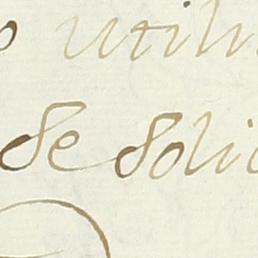 utili
de soli